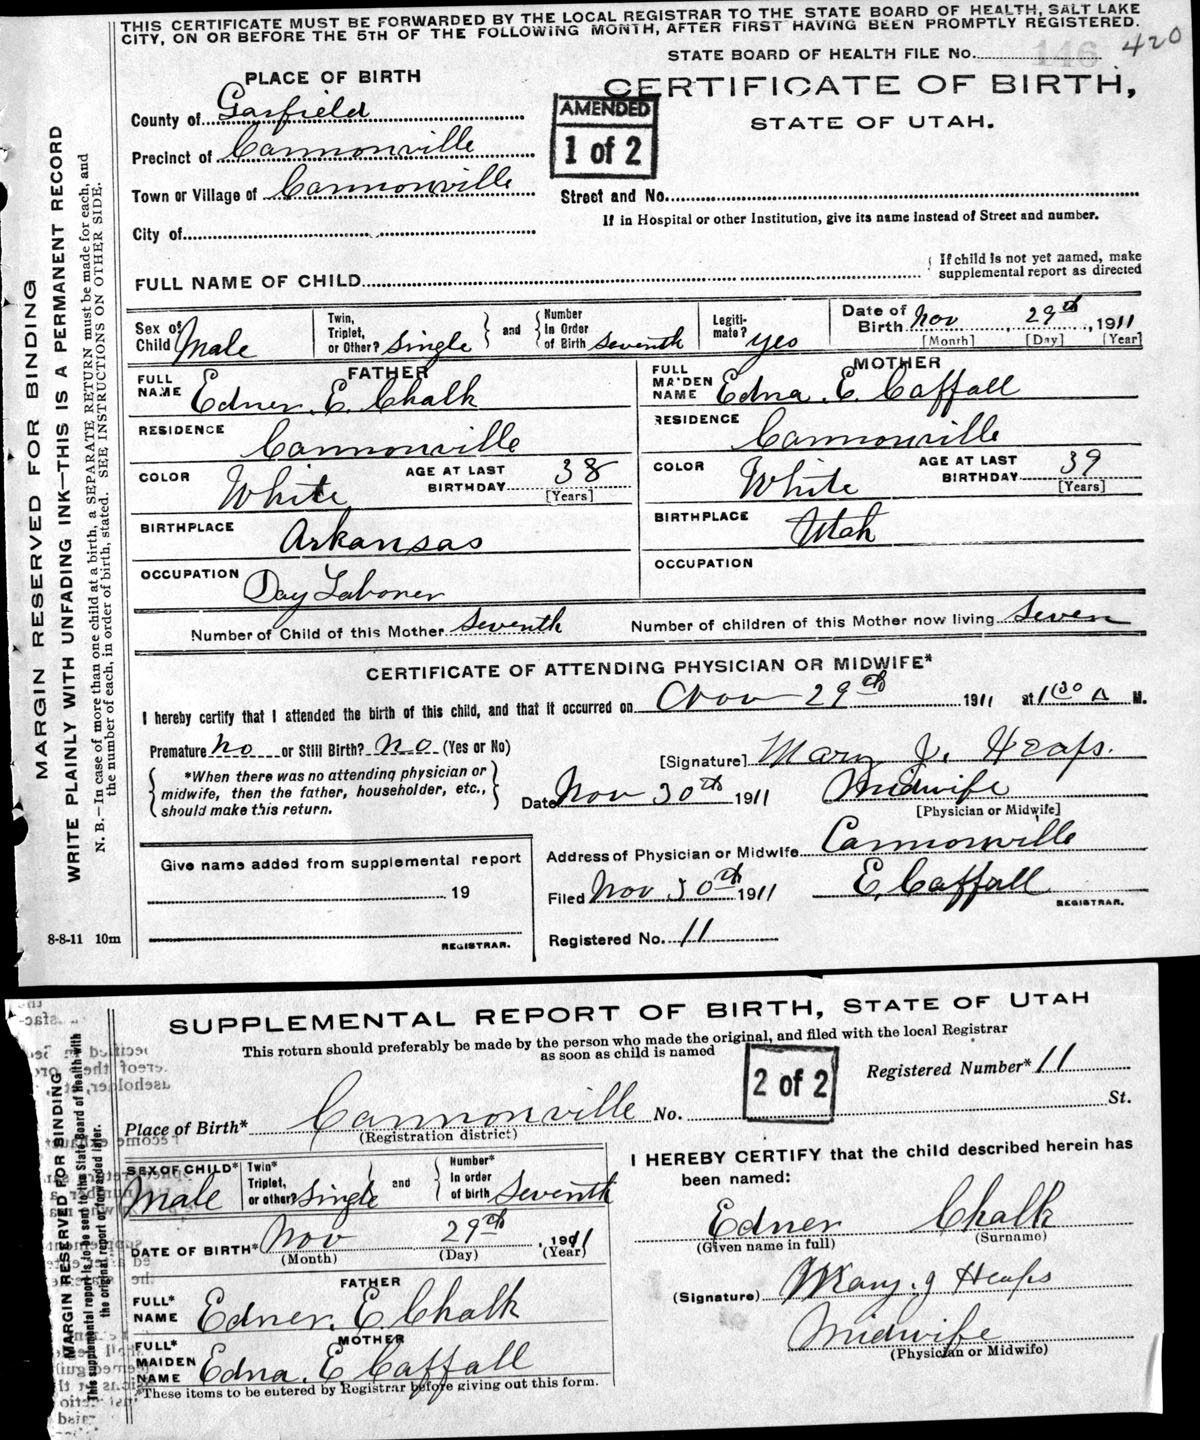 THIS CERTIFICATE MUST BE FORWARDED BY THE LOCAL REGISTRAR TO THE STATE BOARD OF HEALTH, SALT LAKE
CITY, ON OR BEFORE THE 5TH OF THE FOLLOWING MONTH, AFTER FIRST HAVING BEEN PROMPTLY REGISTERED.
STATE BOARD OF HEALTH FILE No. 146 420
PLACE OF BIRTH
CERTIFICATE OF BIRTH,
STATE OF UTAH.
AMENDED
1 of 2
County of Garfield
Precinct of Cannonville
Town or Village of Cannonville
Street and No.
If in Hospital or other Institution, give its name instead of Street and number.
City of
FULL NAME OF CHILD
If child is not yet named, make
supplemental report as directed
Sex of Child Male
Twin, Triplet, or Other? Single and Number In Order of Birth Seventh
Legitimate? yes
Date of Birth Nov 29th, 1911
[Month] [Day] [Year]
FATHER
FULL NAME Edner. E. Chalk
MOTHER
FULL MAIDEN NAME Edna. E. Caffall
RESIDENCE Cannonville
RESIDENCE Cannonville
COLOR White AGE AT LAST BIRTHDAY 38 [Years]
COLOR White AGE AT LAST BIRTHDAY 39 [Years]
BIRTHPLACE Arkansas
BIRTHPLACE Utah
OCCUPATION Day Laborer
OCCUPATION
Number of Child of this Mother Seventh Number of children of this Mother now living Seven
CERTIFICATE OF ATTENDING PHYSICIAN OR MIDWIFE*
I hereby certify that I attended the birth of this child, and that it occurred on Nov 29th 1911 at 1 30 A M.
Premature No or Still Birth? No (Yes or No)
*When there was no attending physician or
midwife, then the father, householder, etc.,
should make this return.
[Signature] Mary J. Heaps.
Date Nov 30th 1911 Midwife
[Physician or Midwife]
Give name added from supplemental report
19
REGISTRAR.
Address of Physician or Midwife Cannonville
Filed Nov 30th 1911 E. Caffall
REGISTRAR.
Registered No. 11
8-8-11 10m
MARGIN RESERVED FOR BINDING
WRITE PLAINLY WITH UNFADING INK—THIS IS A PERMANENT RECORD
N. B.—In case of more than one child at a birth, a SEPARATE RETURN must be made for each, and
the number of each, in order of birth, stated. SEE INSTRUCTIONS ON OTHER SIDE.
SUPPLEMENTAL REPORT OF BIRTH, STATE OF UTAH
This return should preferably be made by the person who made the original, and filed with the local Registrar
as soon as child is named
2 of 2
Registered Number* 11
Place of Birth* Cannonville No. St.
(Registration district)
SEX OF CHILD* Male
Twin* Triplet, or other? Single and Number* In order of birth Seventh
I HEREBY CERTIFY that the child described herein has
been named:
Edner Chalk
(Given name in full) (Surname)
DATE OF BIRTH* Nov 29th, 1911
(Month) (Day) (Year)
FATHER
FULL* NAME Edner. E. Chalk
MOTHER
FULL* MAIDEN NAME Edna. E Caffall
(Signature) Mary. J Heaps
Midwife
(Physician or Midwife)
*These items to be entered by Registrar before giving out this form.
MARGIN RESERVED FOR BINDING
This supplemental report is to be sent to the State Board of Health with
the original report or forwarded later.